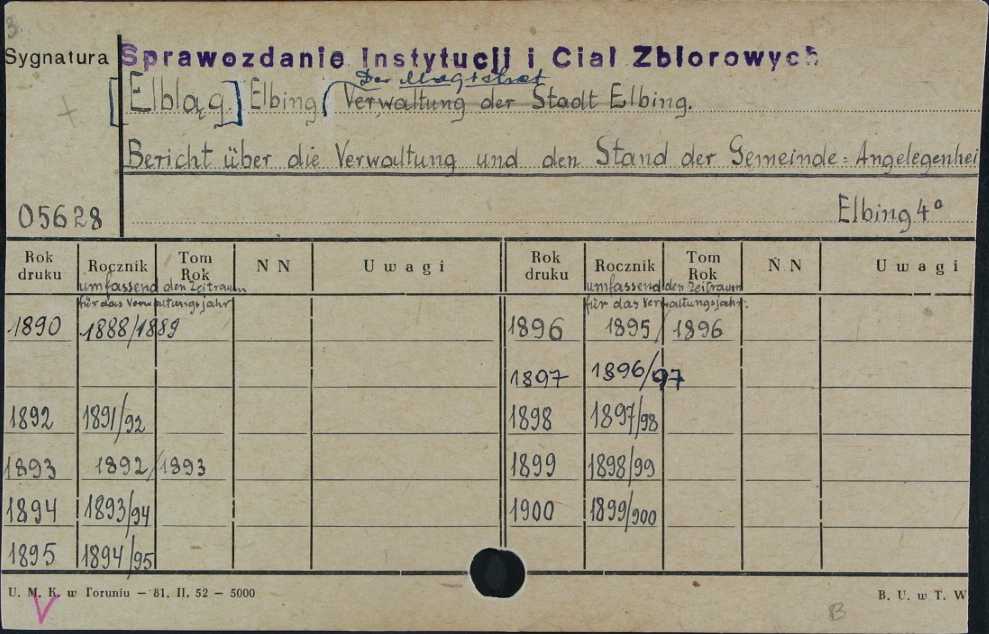 3.
Sygnatura Sprawozdanie Instytucji i Ciał Zbiorowych
Der Magistrat
[Elbląg.] Elbing (Verwaltung der Stadt Elbing.
Bericht über die Verwaltung und den Stand der Gemeinde=Angelegenhei
05628 Elbing 4°
Rok druku Rocznik Tom Rok N N Uwagi Rok druku Rocznik Tom Rok N N Uwagi
umfassend den Zeitraum umfassend den Zeitraum
für das Verwaltungsjahr für das Verwaltungsjahr:
1890 1888/1889 1896 1895/1896
1897 1896/97
1892 1891/92 1898 1897/98
1893 1892/1893 1899 1898/99
1894 1893/94 1900 1899/900
1895 1894/95
U. M. K. w Toruniu — 81. II. 52 — 5000 B. U. w T. W
B